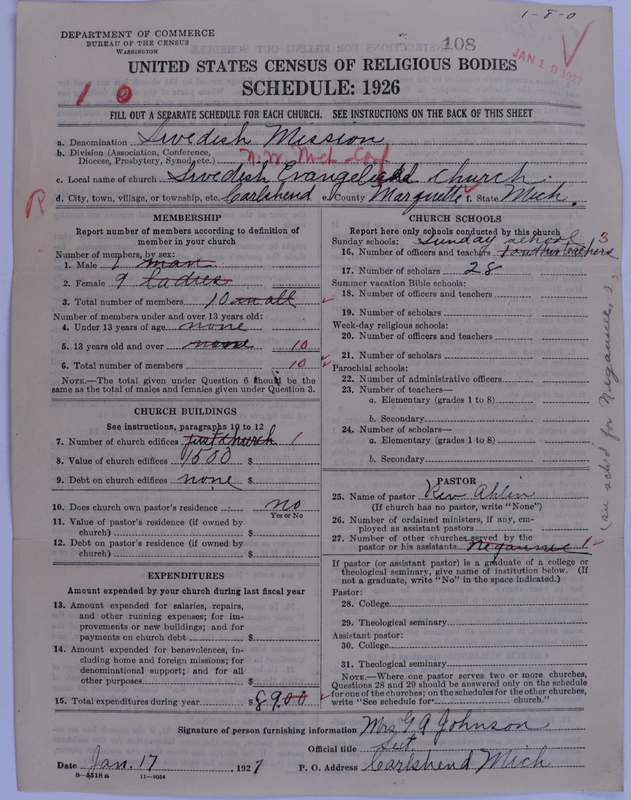 1-8-0
DEPARTMENT OF COMMERCE
BUREAU OF THE CENSUS
WASHINGTON
108
JAN 19 1927
UNITED STATES CENSUS OF RELIGIOUS BODIES
SCHEDULE: 1926
1 0
FILL OUT A SEPARATE SCHEDULE FOR EACH CHURCH. SEE INSTRUCTIONS ON THE BACK OF THIS SHEET
a. Denomination Swedish Mission
b. Division (Association, Conference, Diocese, Presbytery, Synod, etc.) N.W. Mich. Conf
c. Local name of church Swedish Evangelical church
R
d. City, town, village, or township, etc. Carlshend e. County Marquette f. State Mich.
MEMBERSHIP
Report number of members according to definition of
member in your church
Number of members, by sex:
1. Male 1 man
2. Female 9 ladies
3. Total number of members 10 in all
Number of members under and over 13 years old:
4. Under 13 years of age none
5. 13 years old and over none 10
6. Total number of members 10
NOTE.—The total given under Question 6 should be the
same as the total of males and females given under Question 3.
CHURCH BUILDINGS
See instructions, paragraphs 10 to 12
7. Number of church edifices just church 1
8. Value of church edifices 1500 $
9. Debt on church edifices none $
10. Does church own pastor's residence no
Yes or No
11. Value of pastor's residence (if owned by
church) $
12. Debt on pastor's residence (if owned by
church) $
EXPENDITURES
Amount expended by your church during last fiscal year
13. Amount expended for salaries, repairs,
and other running expenses; for im-
provements or new buildings; and for
payments on church debt $
14. Amount expended for benevolences, in-
cluding home and foreign missions; for
denominational support; and for all
other purposes $
15. Total expenditures during year $ 89.00
CHURCH SCHOOLS
Report here only schools conducted by this church
Sunday schools: Sunday school 3
16. Number of officers and teachers teachers
17. Number of scholars 28
Summer vacation Bible schools:
18. Number of officers and teachers
19. Number of scholars
Week-day religious schools:
20. Number of officers and teachers
21. Number of scholars
Parochial schools:
22. Number of administrative officers
23. Number of teachers—
a. Elementary (grades 1 to 8)
b. Secondary
24. Number of scholars—
a. Elementary (grades 1 to 8)
b. Secondary
PASTOR
25. Name of pastor Rev Ahlin
(If church has no pastor, write "None")
26. Number of ordained ministers, if any, em-
ployed as assistant pastors
27. Number of other churches served by the
pastor or his assistants Negaunee 1
If pastor (or assistant pastor) is a graduate of a college or
theological seminary, give name of institution below. (If
not a graduate, write "No" in the space indicated.)
Pastor:
28. College
29. Theological seminary
Assistant pastor:
30. College
31. Theological seminary
NOTE.—Where one pastor serves two or more churches,
Questions 28 and 29 should be answered only on the schedule
for one of the churches; on the schedules for the other churches,
write "See schedule for church."
sch'd for Negaunee
Signature of person furnishing information Mrs G A Johnson
Official title
Date Jan. 17, 1927 P. O. Address Carlshend Mich
8—5518a 11—9054